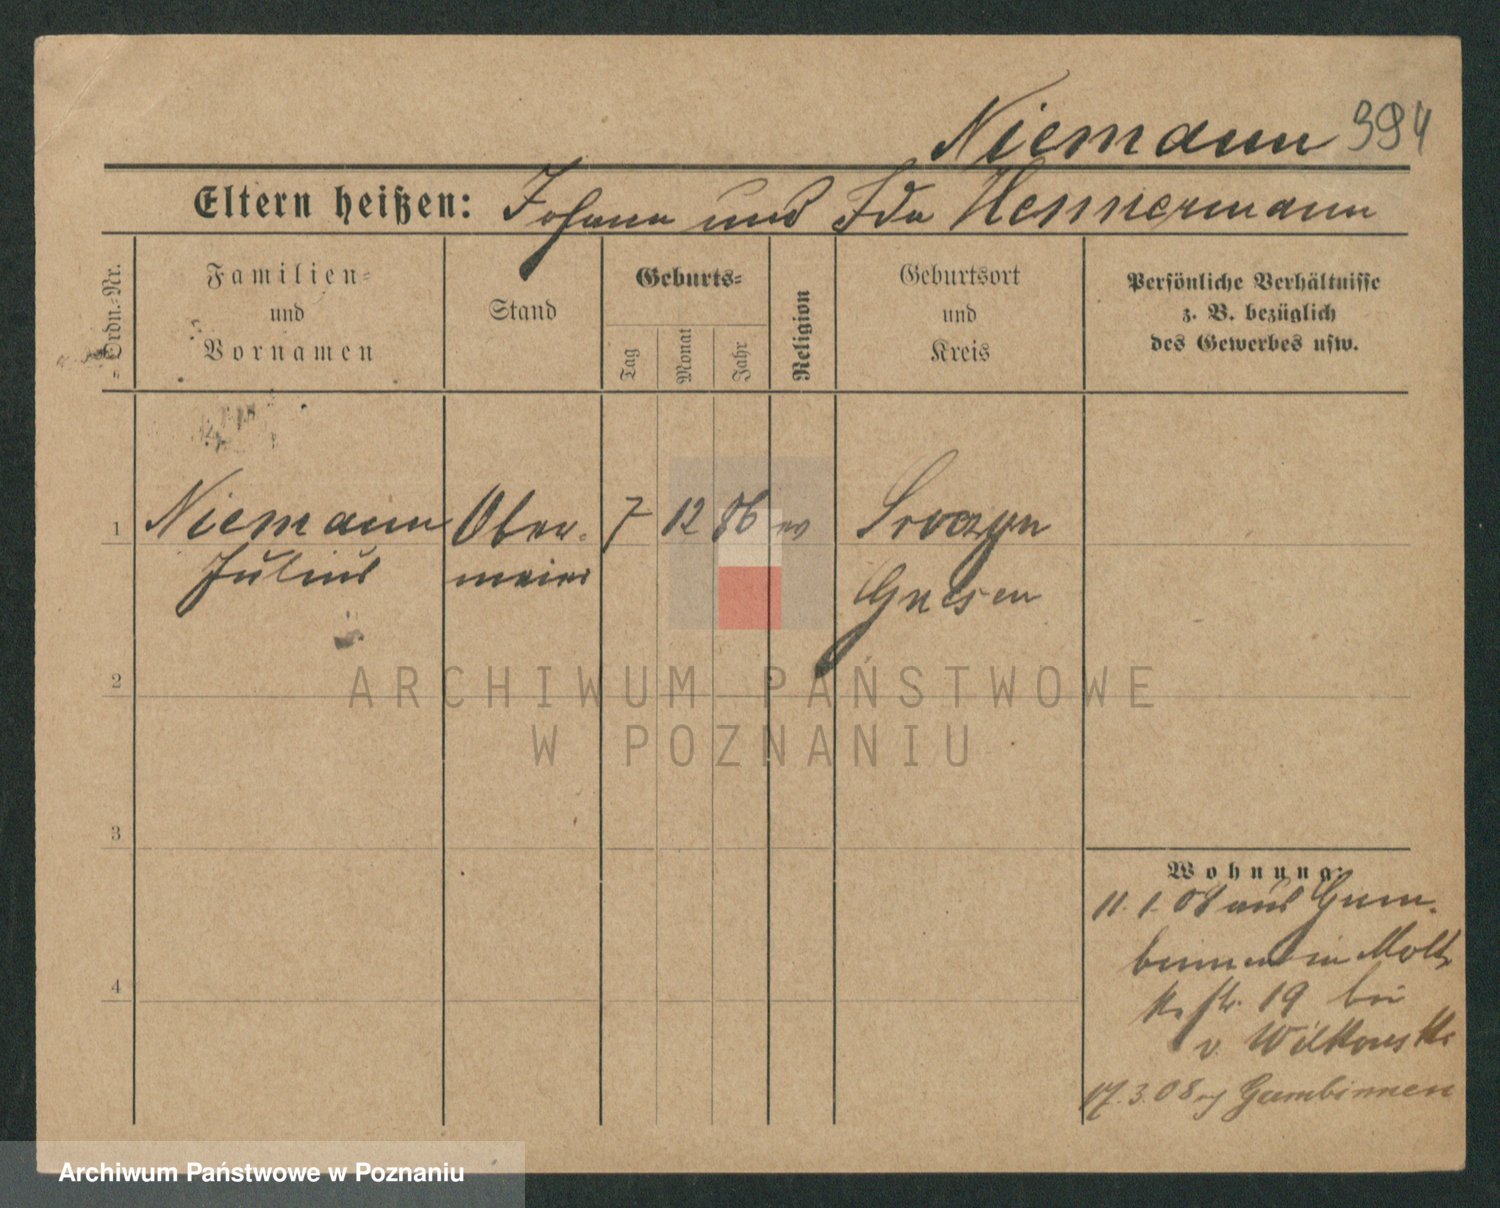 Niemann 394
Eltern heißen: Johann und Ida Hennermann
Ordn.-Nr.
Familien-
und
Vornamen
Stand
Geburts-
Tag
Monat
Jahr
Religion
Geburtsort
und
Kreis
Persönliche Verhältnisse
z. B. bezüglich
des Gewerbes usw.
1 Niemann Ober- 7 12 86 ev
Julius
Gnesen
2
ARCHIWUM PAŃSTWOWE
W POZNANIU
3
4
Wohnung:
11. 1. 08 aus Gum-
binnen in Molt
ke str. 19 bei
v. Wilkonski
17. 3. 08 Gumbinnen
Archiwum Państwowe w Poznaniu